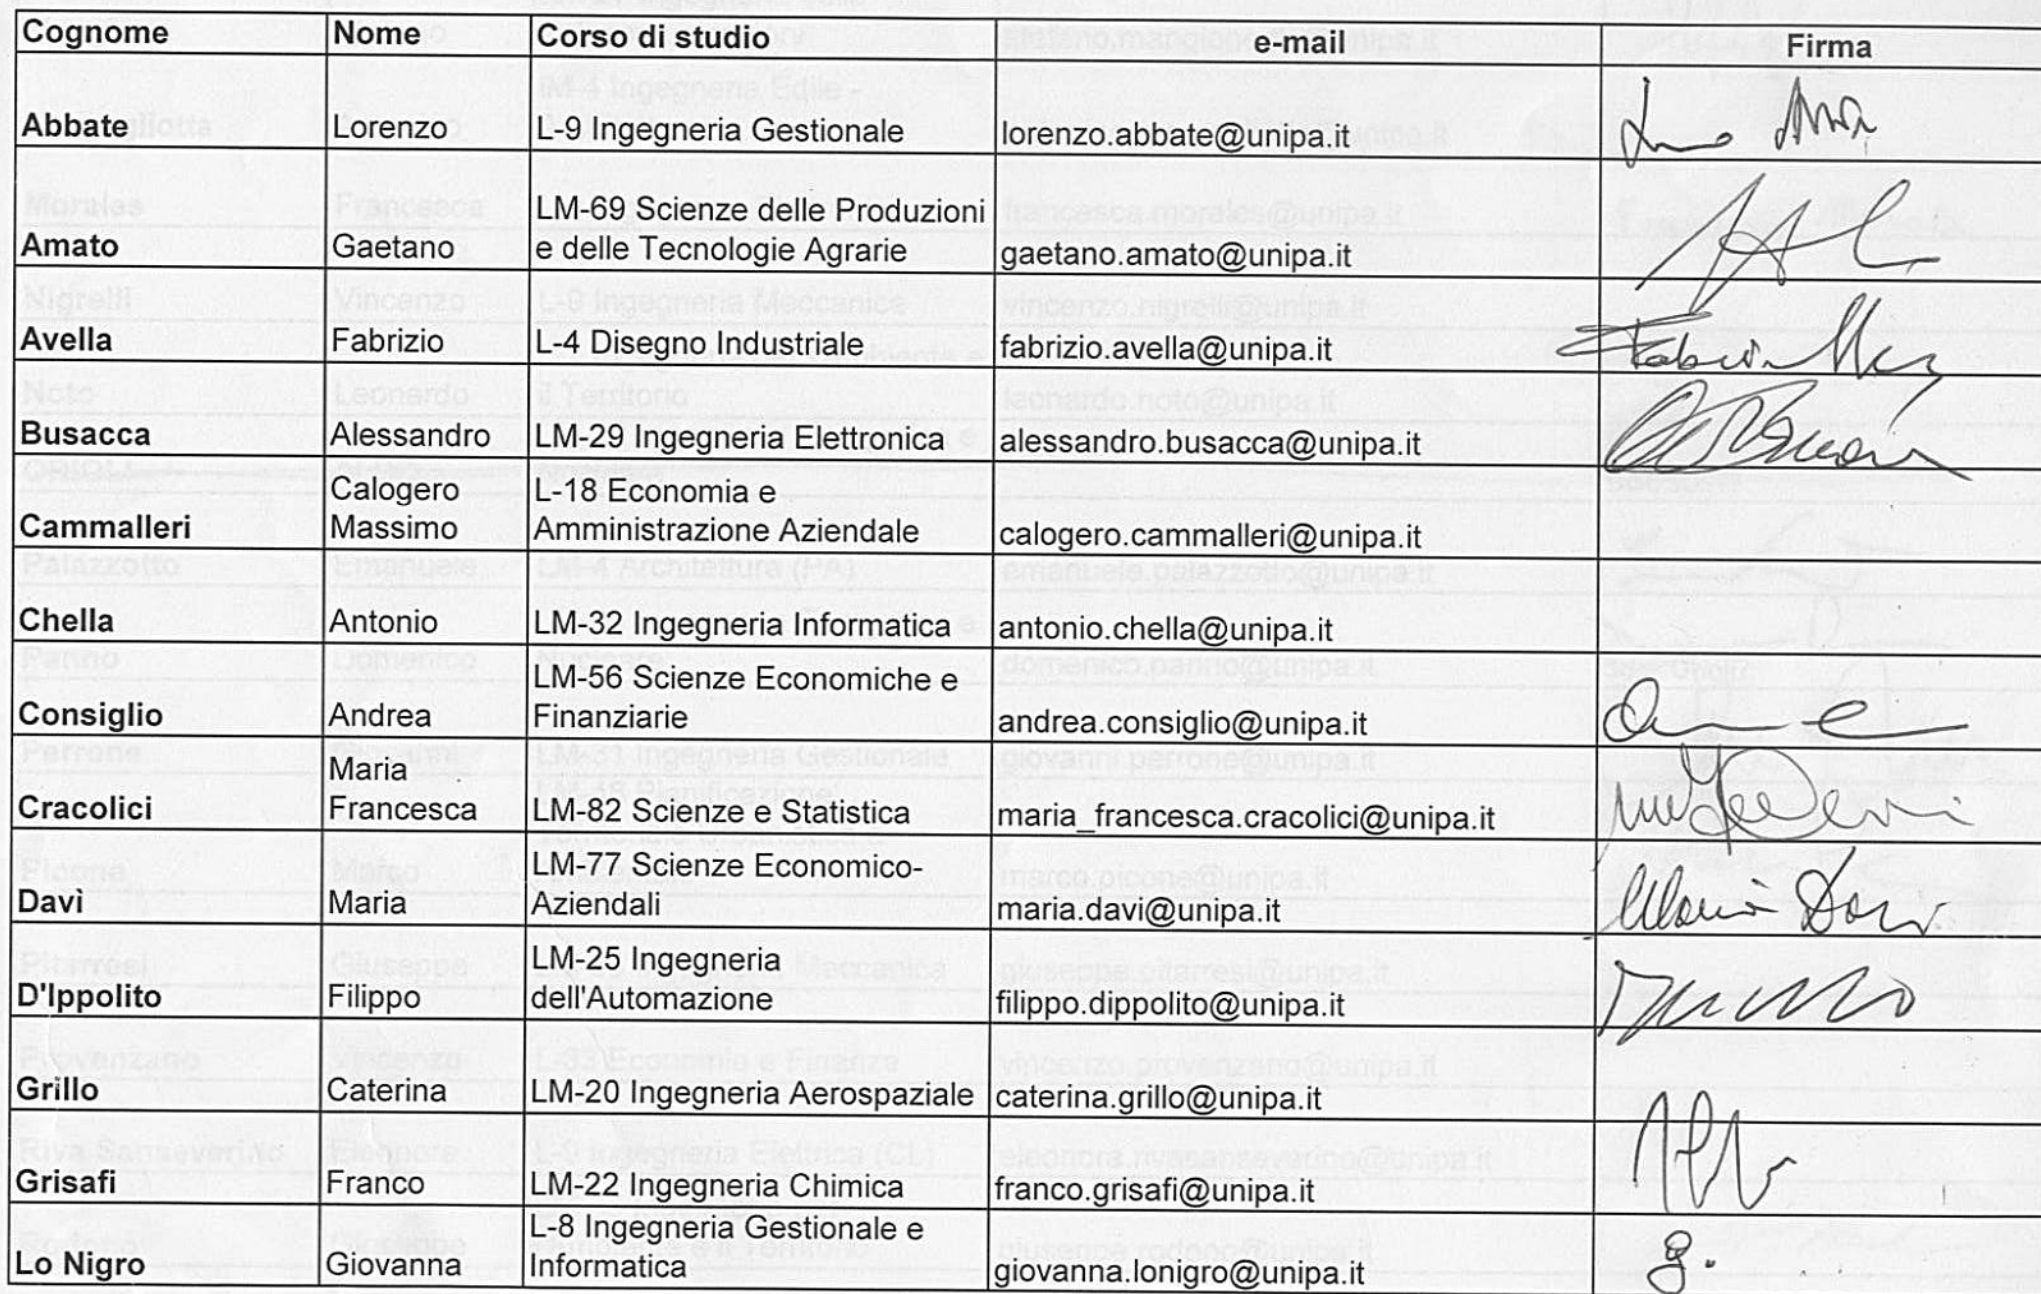 Cognome Nome Corso di studio e-mail Firma
Abbate Lorenzo L-9 Ingegneria Gestionale lorenzo.abbate@unipa.it
LM-69 Scienze delle Produzioni
Amato Gaetano e delle Tecnologie Agrarie gaetano.amato@unipa.it
Avella Fabrizio L-4 Disegno Industriale fabrizio.avella@unipa.it
Busacca Alessandro LM-29 Ingegneria Elettronica alessandro.busacca@unipa.it
Calogero L-18 Economia e
Cammalleri Massimo Amministrazione Aziendale calogero.cammalleri@unipa.it
Chella Antonio LM-32 Ingegneria Informatica antonio.chella@unipa.it
LM-56 Scienze Economiche e
Consiglio Andrea Finanziarie andrea.consiglio@unipa.it
Maria
Cracolici Francesca LM-82 Scienze e Statistica maria_francesca.cracolici@unipa.it
LM-77 Scienze Economico-
Davì Maria Aziendali maria.davi@unipa.it Maria Davì
LM-25 Ingegneria
D'Ippolito Filippo dell'Automazione filippo.dippolito@unipa.it
Grillo Caterina LM-20 Ingegneria Aerospaziale caterina.grillo@unipa.it
Grisafi Franco LM-22 Ingegneria Chimica franco.grisafi@unipa.it
L-8 Ingegneria Gestionale e
Lo Nigro Giovanna Informatica giovanna.lonigro@unipa.it